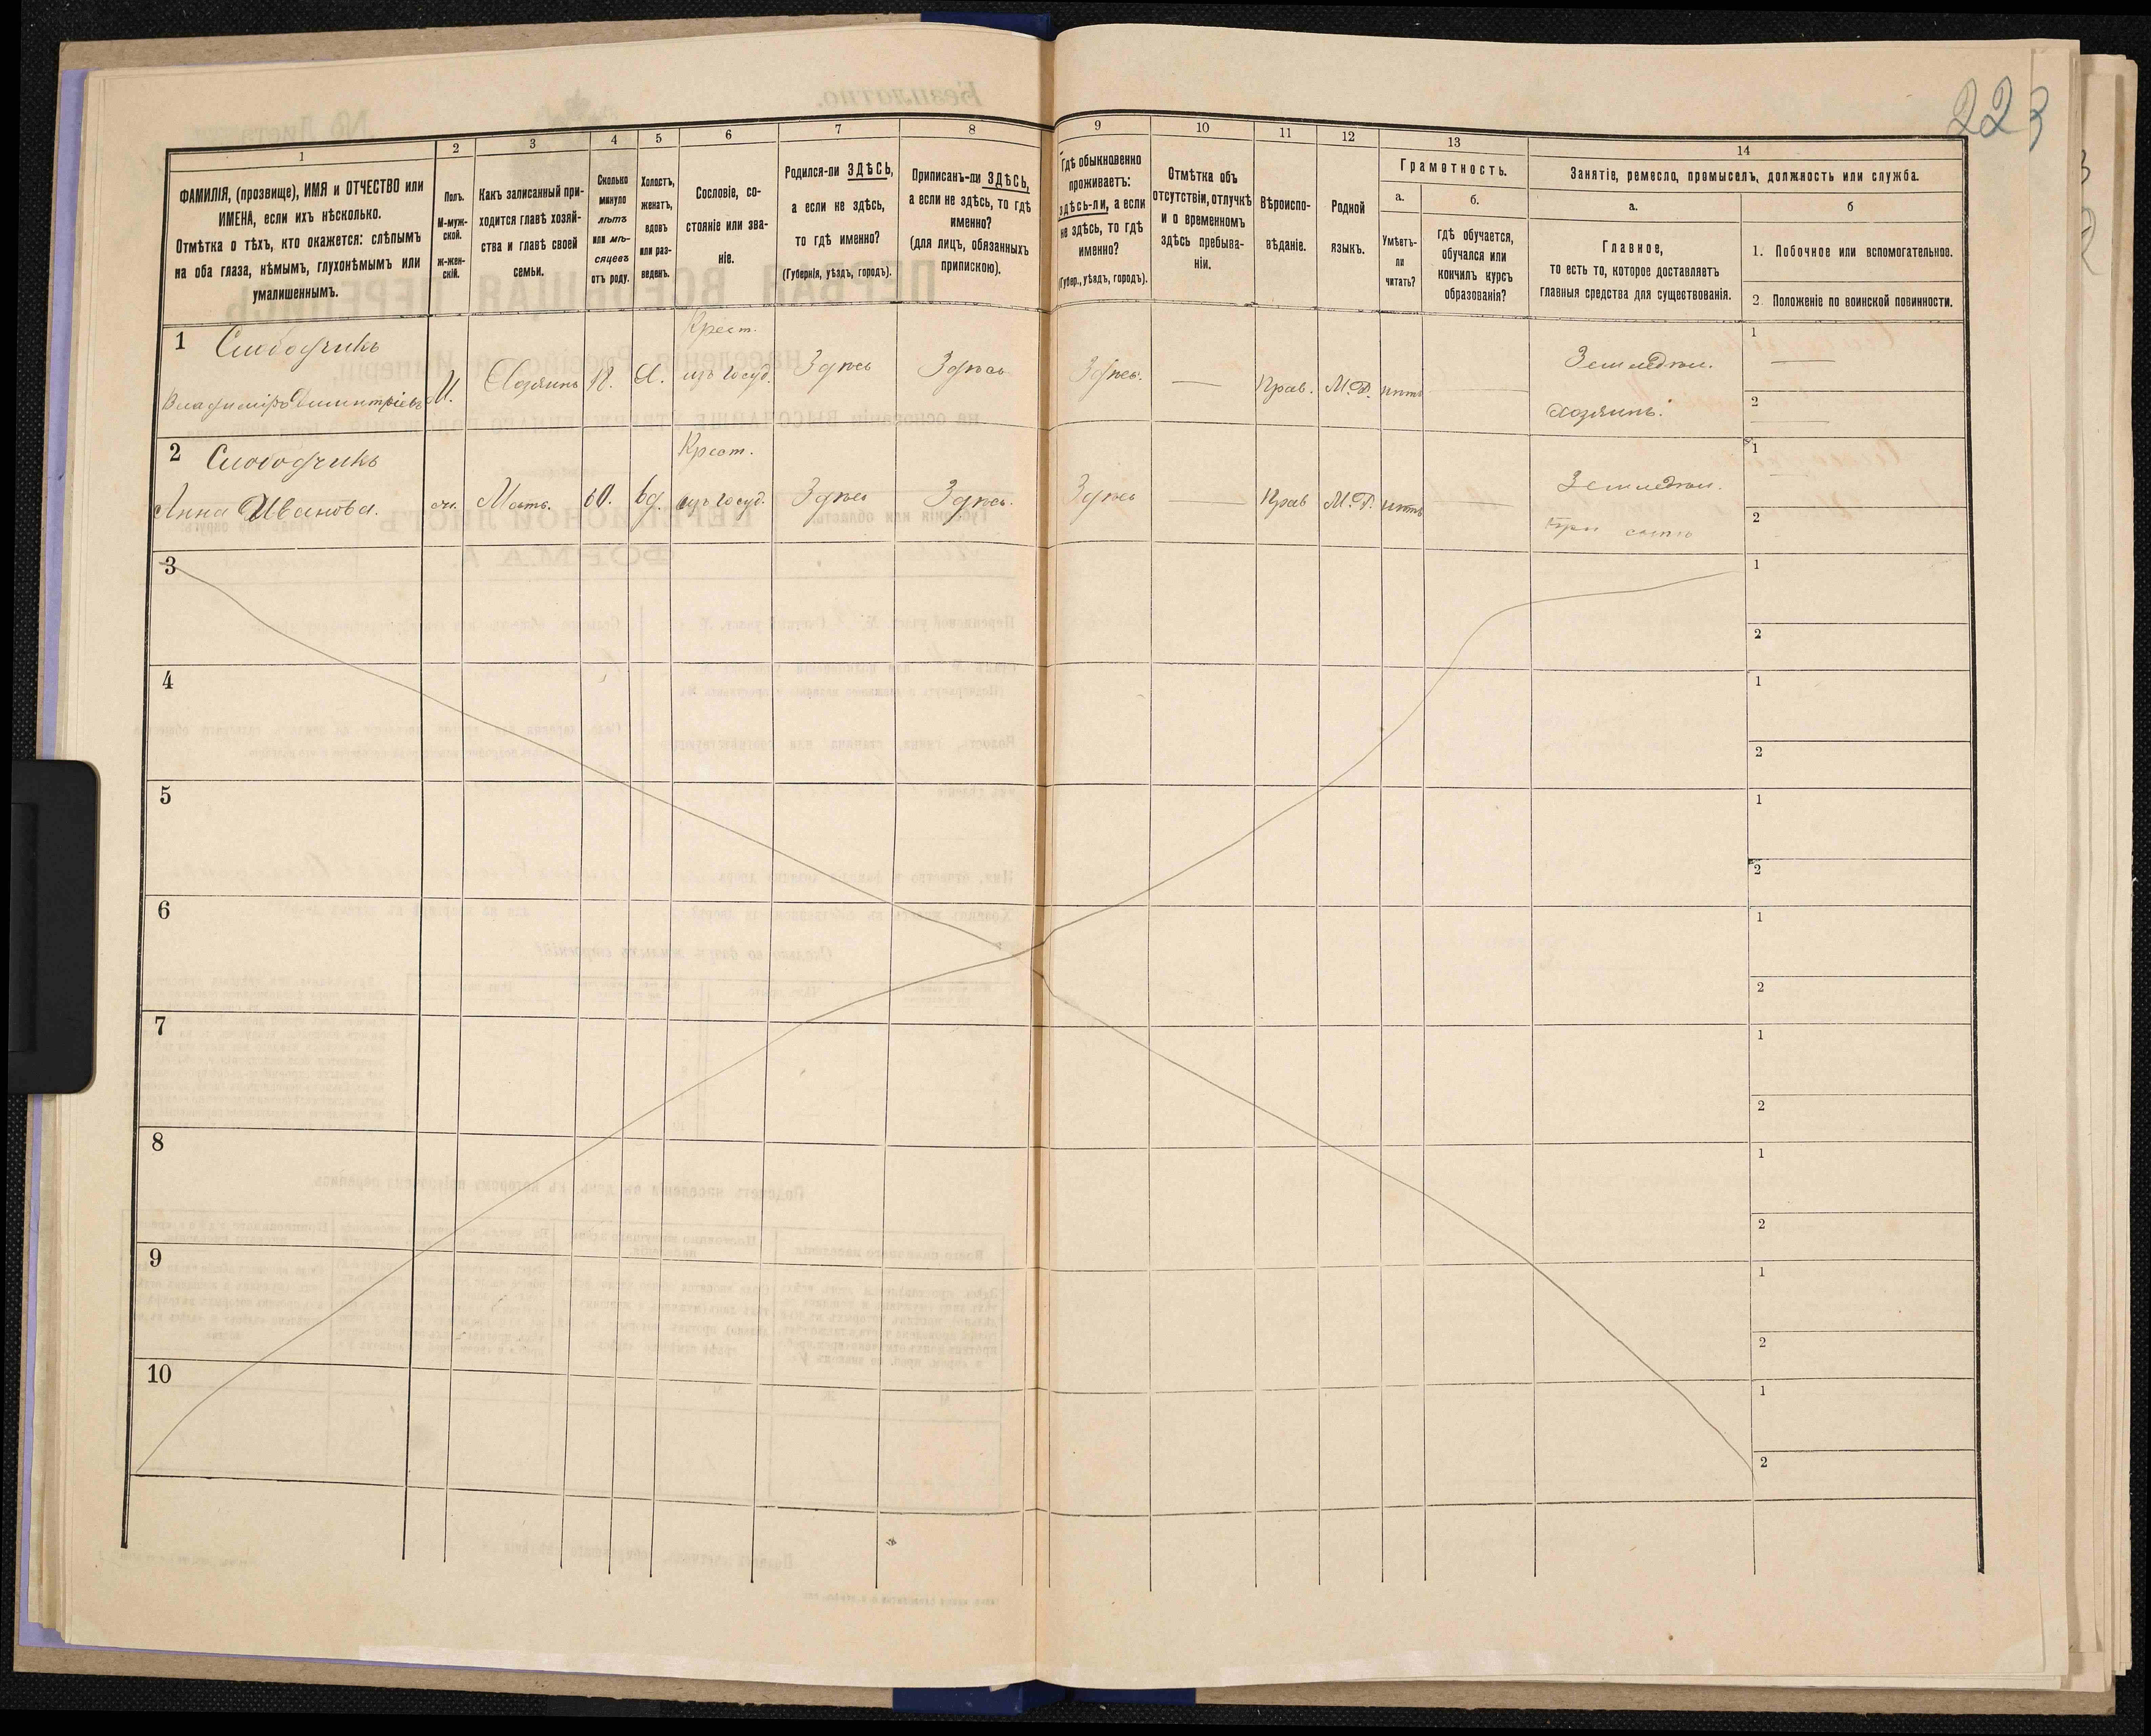 223
1
2
3
4
5
6
7
8
9
10
11
12
13
14
ФАМИЛІЯ, (прозвище), ИМЯ и ОТЧЕСТВО или
ИМЕНА, если ихъ нѣсколько.
Отмѣтка о тѣхъ, кто окажется: слѣпымъ
на оба глаза, нѣмымъ, глухонѣмымъ или
умалишеннымъ.
Полъ.
М-муж-
ской.
Ж-жен-
скій.
Какъ записанный при-
ходится главѣ хозяй-
ства и главѣ своей
семьи.
Сколько
минуло
лѣтъ
или мѣ-
сяцевъ
отъ роду.
Холостъ,
женатъ,
вдовъ
или раз-
веденъ.
Сословіе, со-
стояніе или зва-
ніе.
Родился-ли ЗДѢСЬ,
а если не здѣсь,
то гдѣ именно?
(Губернія, уѣздъ, городъ).
Приписанъ-ли ЗДѢСЬ,
а если не здѣсь, то гдѣ
именно?
(для лицъ, обязанныхъ
припискою).
Гдѣ обыкновенно
проживаетъ:
здѣсь-ли, а если
не здѣсь, то гдѣ
именно?
(Губер., уѣздъ, городъ).
Отмѣтка объ
отсутствіи, отлучкѣ
и о временномъ
здѣсь пребыва-
ніи.
Вѣроиспо-
вѣданіе.
Родной
языкъ.
Грамотность.
а.
Умѣетъ-
ли
читать?
б.
гдѣ обучается,
обучался или
кончилъ курсъ
образованія?
Занятіе, ремесло, промыселъ, должность или служба.
а.
Главное,
то есть то, которое доставляетъ
главныя средства для существованія.
б
1. Побочное или вспомогательное.
2. Положеніе по воинской повинности.
1 Слободчикъ
Владиміръ Димитріевъ
М. Хозяинъ 18. Х.
Крест.
изъ госуд. Здѣсь Здѣсь Здѣсь. — Прав. М.Р. нѣтъ —
Земледѣл.
Хозяинъ.
1 —
2 —
2 Слободчикъ
Анна Иванова.
ж. Мать. 60. вд.
Крест.
изъ госуд. Здѣсь Здѣсь. Здѣсь — Прав М.Р. нѣтъ —
Земледѣл.
при сынѣ
1 —
2
3
1
2
4
1
2
5
1
2
6
1
2
7
1
2
8
1
2
9
1
2
10
1
2